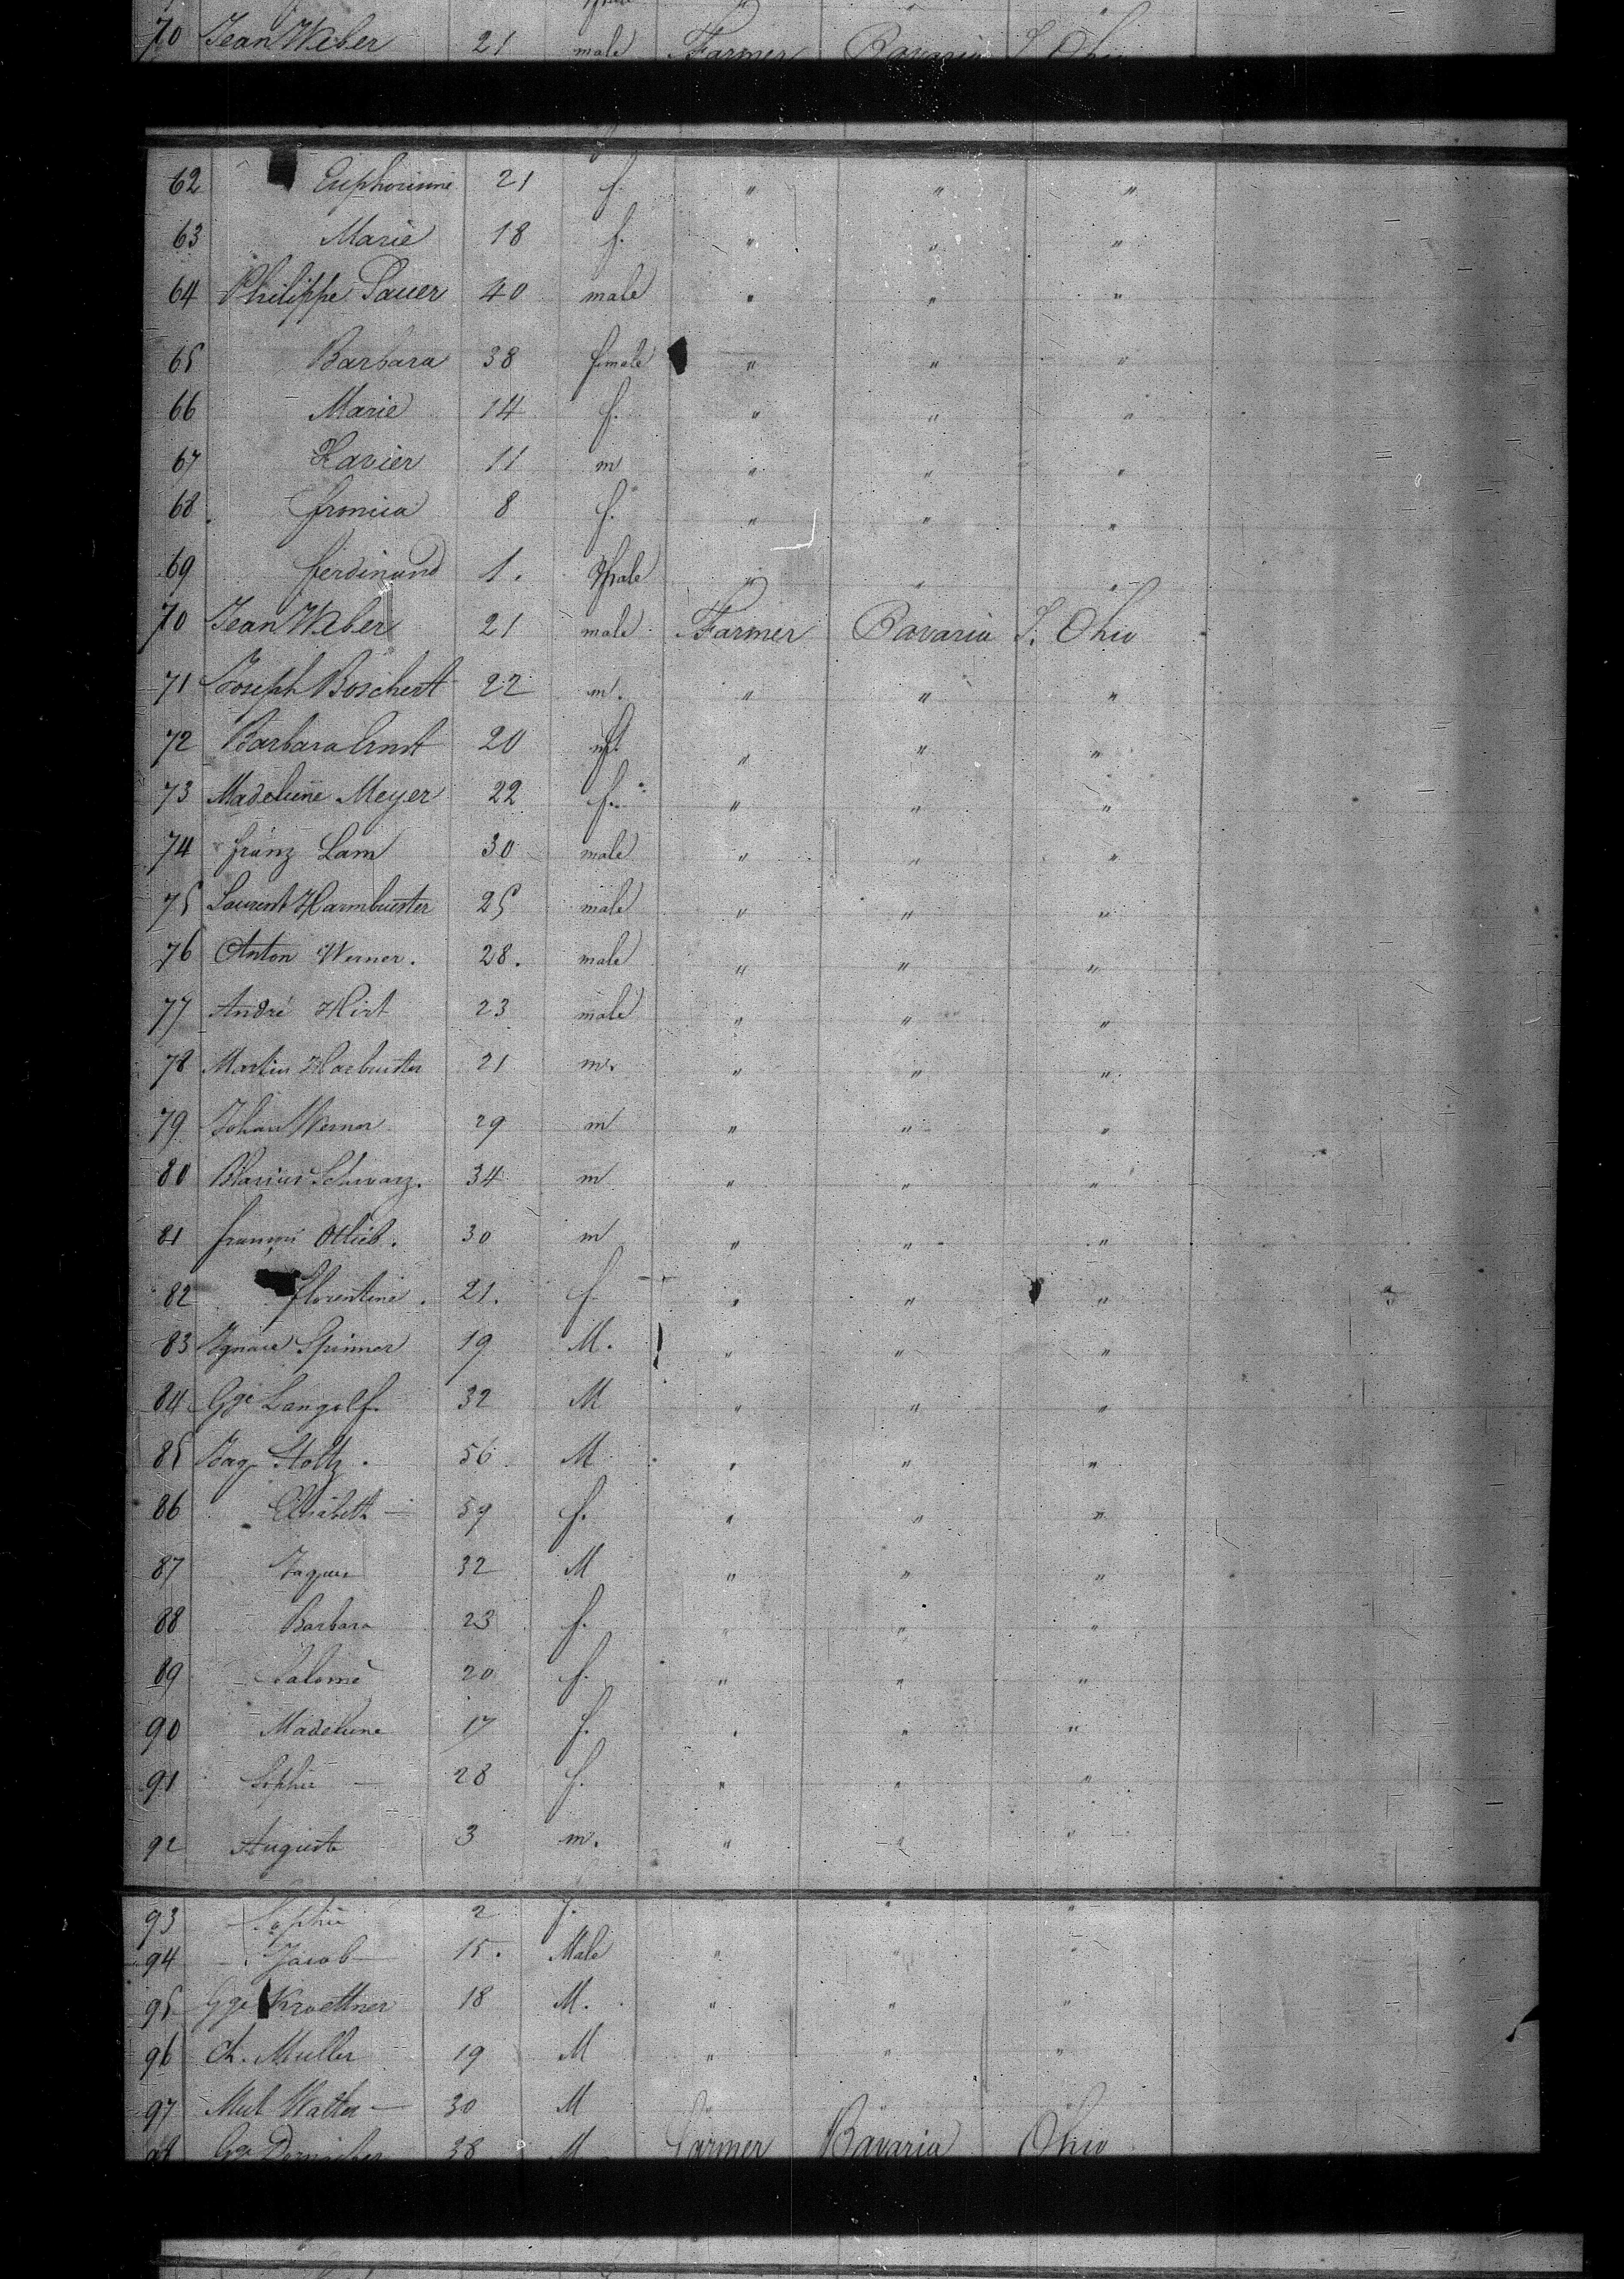 70 Jean Weber 21 male Farmer Bavaria S. Ohio
62 Euphorinne 21 f. " " "
63 Marie 18 f. " " "
64 Philippe Sauer 40 male " " "
65 Barbara 38 female " " "
66 Marie 14 f. " " "
67 Xavier 11 m " " "
68 8 f. " " "
69 ferdinand 1. Male " " "
70 Jean Weber 21 male Farmer Bavaria S. Ohio
71 Joseph Boschert 22 m. " " "
72 Barbara Ernst 20 f. " " "
73 Madeleine Meyer 22 f. " " "
74 franz Lam 30 male " " "
75 Laurent Harmbruster 25 male " " "
76 Anton Werner. 28. male " " "
77 André Hirt 23 male " " "
78 Martin Harbruster 21 m. " " "
79 Johan Werner 29 m " " "
80 Blasius Schwarz. 34 m " " "
81 françois Ottlieb. 30 m " " "
82 florentine. 21. f " " "
83 Ignace Spinner 19 M. " " "
84 Gge Langolf. 32 M " " "
85 Jaq. Stoltz. 56 M " " "
86 Elisabeth — 59 f. " " "
87 Jaques 32 M " " "
88 Barbara 23 f. " " "
89 Salomé 20 f. " " "
90 Madeleine 17 f. " " "
91 Sophie — 28 f. " " "
92 Auguste 3 m. " " "
93 Sophie 2 f. " " "
94 Jacob — 15. Male " " "
95 Gge Kroettner 18 M. " " "
96 Ch. Muller 19 M " " "
97 Mich Walter — 30 M " " "
98 Gge 38 M Farmer Bavaria Ohio